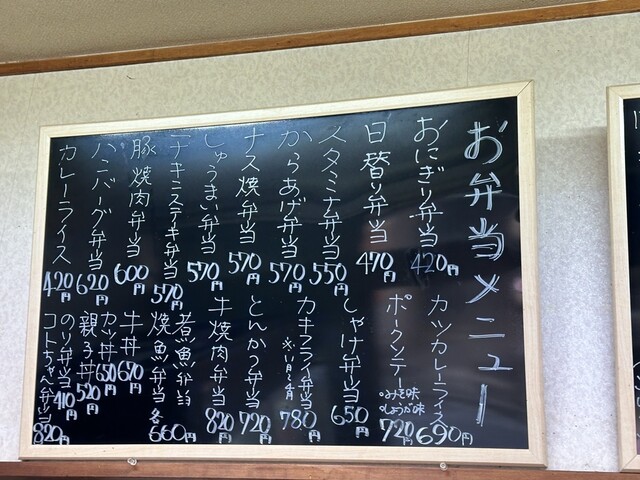 お弁当メニュー
おにぎり弁当 420円
日替り弁当 470円
スタミナ弁当 550円
からあげ弁当 570円
ナス焼弁当 570円
しゅうまい弁当 570円
チキンステーキ弁当 570円
豚焼肉弁当 600円
ハンバーグ弁当 620円
カレーライス 420円
カツカレーライス 690円
ポークソテー
・みそ味
・しょうが味
720円
しゃけ弁当 650円
カキフライ弁当 780円
とんかつ弁当 720円
牛焼肉弁当 820円
煮魚弁当
焼魚弁当
各660円
牛丼 670円
カツ丼 650円
親子丼 520円
のり弁当 410円
コトちゃん弁当 820円